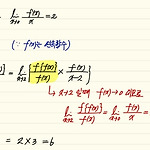 lim x→0 f(x)/x = 2
(∵ f(x)는
= lim x→2 { f(f(x))/f(x) × f(x)/x-2 }
→ x→2 일때 f(x)→0 이므로
lim x→2 f(f(x))/f(x) = lim x→0 f(x)/x =
= 2×3 = 6